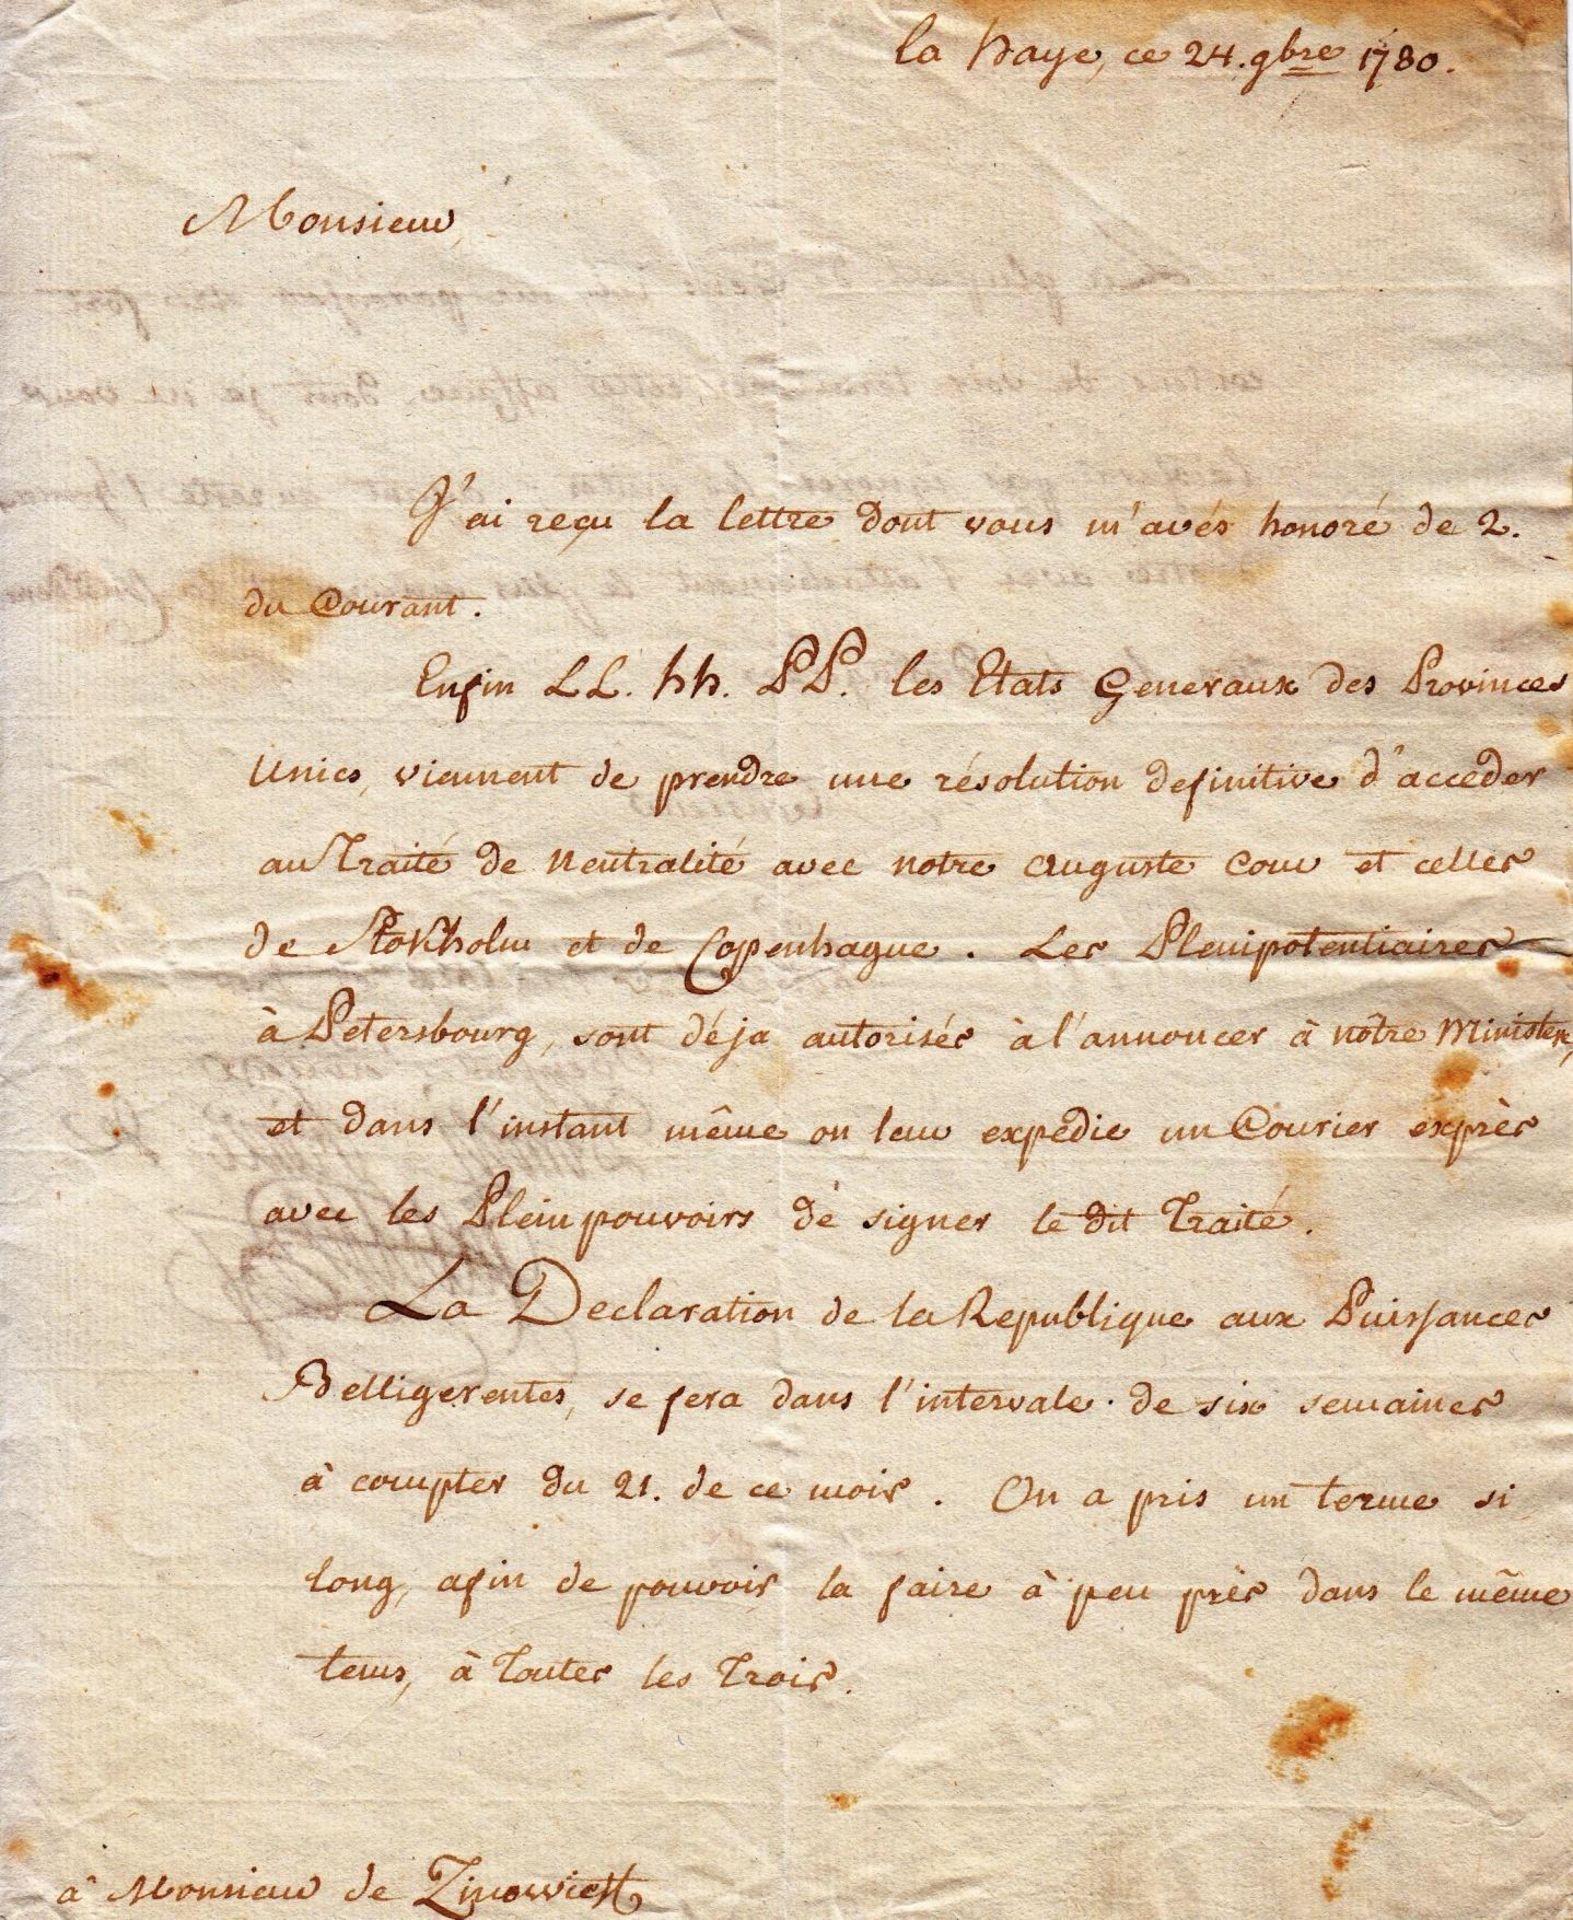 la haye, ce 24. 9bre 1780.
Monsieur,
J'ai reçu la lettre dont vous m'avés honoré de 2.
du Courant.
Enfin LL. hh. PP. les Etats Generaux des Provinces
Unies, viennent de prendre une résolution definitive d'acceder
au Traité de Neutralité avec notre Auguste Cour et celles
de Stokholm et de Copenhague. Les Plenipotentiaires
à Petersbourg, sont déja autorisés à l'annoncer à nôtre Ministere,
et dans l'instant même on leur expedie un Courier exprès
avec les Plein pouvoirs de signer le dit Traité.
La Declaration de la Republique aux Puissances
Belligerentes, se fera dans l'intervale de six semaines
à compter du 21. de ce mois. On a pris un terme si
long, afin de pouvoir la faire à peu près dans le même
tems, à Toutes les Trois.
à Monsieur de Zinowieff